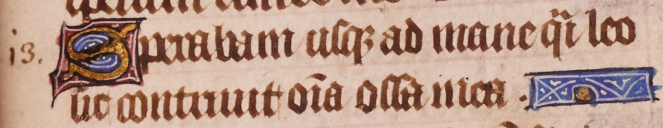 13. Sperabam usq; ad mane q̄i leo
sic contriuit oīa ossa mea .